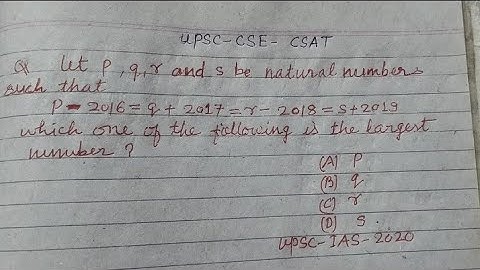 UPSC-CSE- CSAT
Q Let P, q, r and s be natural numbers
such that
P - 2016 = q + 2017 = r - 2018 = s + 2019
which one of the following is the largest
number ?
(A) P
(B) q
(C) r
(D) s.
UPSC-IAS-2020